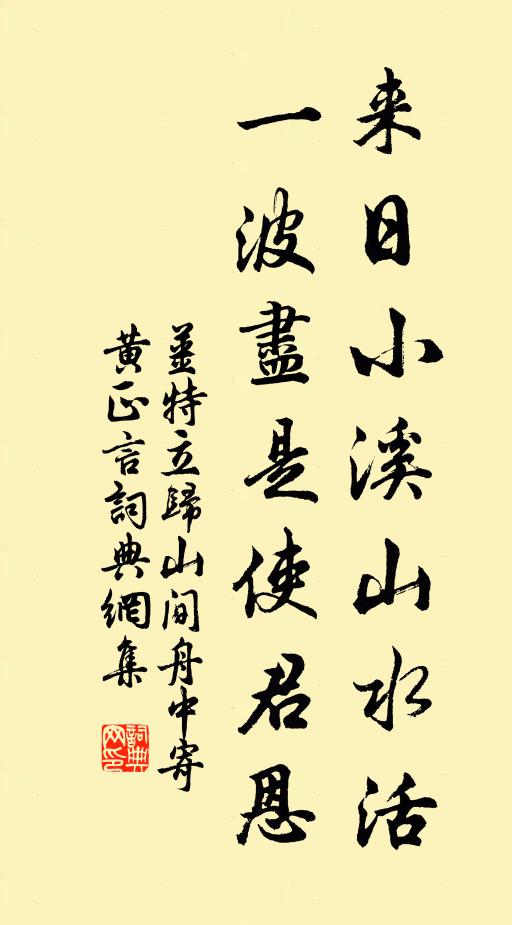 来日小溪山水活
一波盡是使君恩
姜特立歸山間舟中寄
黄正言詞典網集
詞典
网印